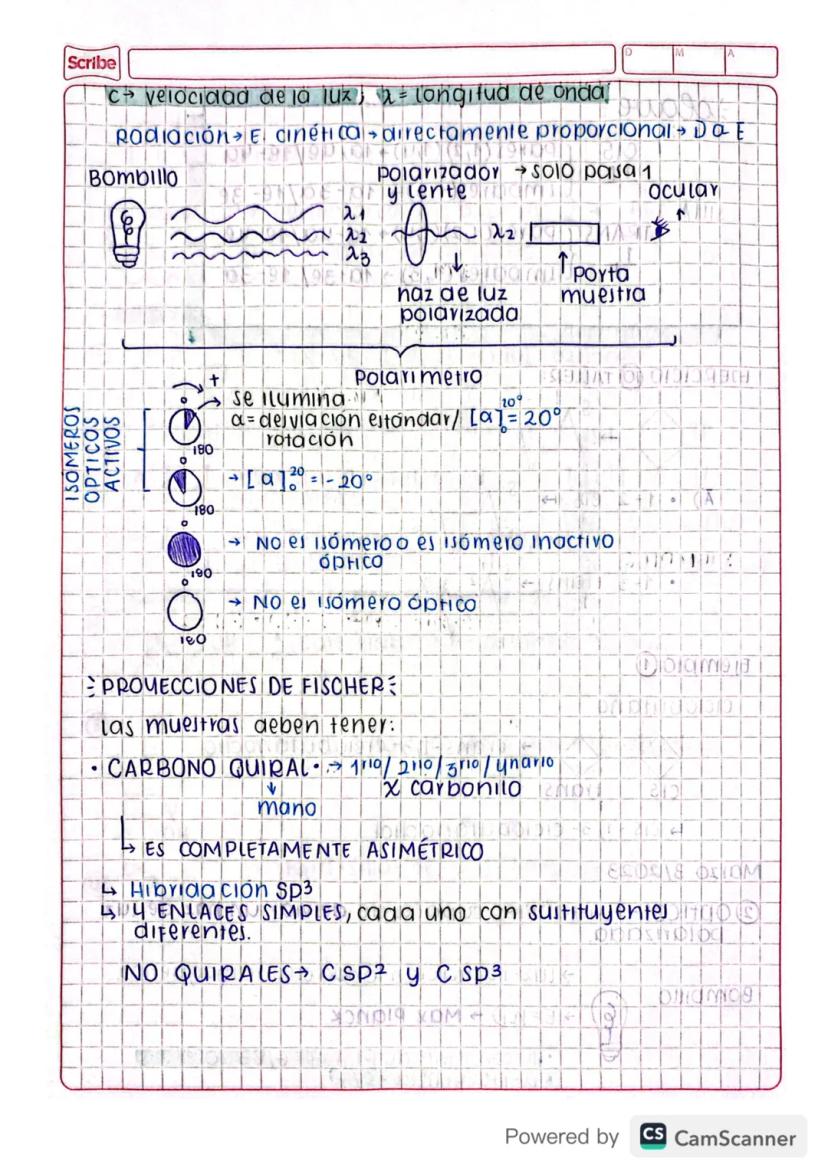 Scribe
D M A
C→ velocidad de la luz; λ= longitud de onda
Radiación→ E. cinética→directamente proporcional→ D a E
Bombillo
polarizador → solo pasa 1
y lente
ocular
λ1
λ2
λ3
λ2
porta
muestra
haz de luz
polarizada
Polarimetro
+
ISÓMEROS
ÓPTICOS
ACTIVOS
→ se ilumina
α= desviación estándar/ [α]20°o = 20°
rotación
180
o
→ [α]20o = - 20°
180
o
→ No es isómero o es isómero inactivo
óptico
180
o
→ No es isómero óptico
180
PROYECCIONES DE FISCHER
las muestras deben tener:
• CARBONO QUIRAL • → 1rio/ 2rio/3rio/4nario
X carbonilo
mano
↳ ES COMPLETAMENTE ASIMÉTRICO
↳ Hibridación sp3
↳ 4 ENLACES SIMPLES, cada uno con sustituyentes
diferentes.
NO QUIRALES→ C sp2 y C sp3
Powered by CS CamScanner